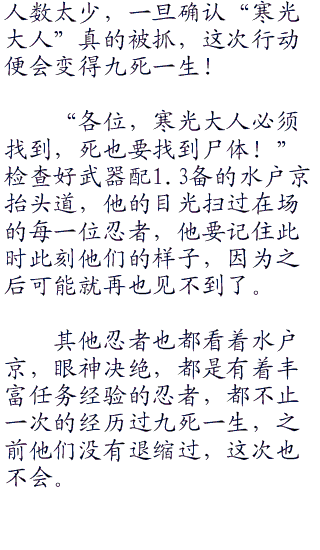 人数太少，一旦确认“寒光
大人”真的被抓，这次行动
便会变得九死一生！
“各位，寒光大人必须
找到，死也要找到尸体！”
检查好武器配1.3备的水户京
抬头道，他的目光扫过在场
的每一位忍者，他要记住此
时此刻他们的样子，因为之
后可能就再也见不到了。
其他忍者也都看着水户
京，眼神决绝，都是有着丰
富任务经验的忍者，都不止
一次的经历过九死一生，之
前他们没有退缩过，这次也
不会。